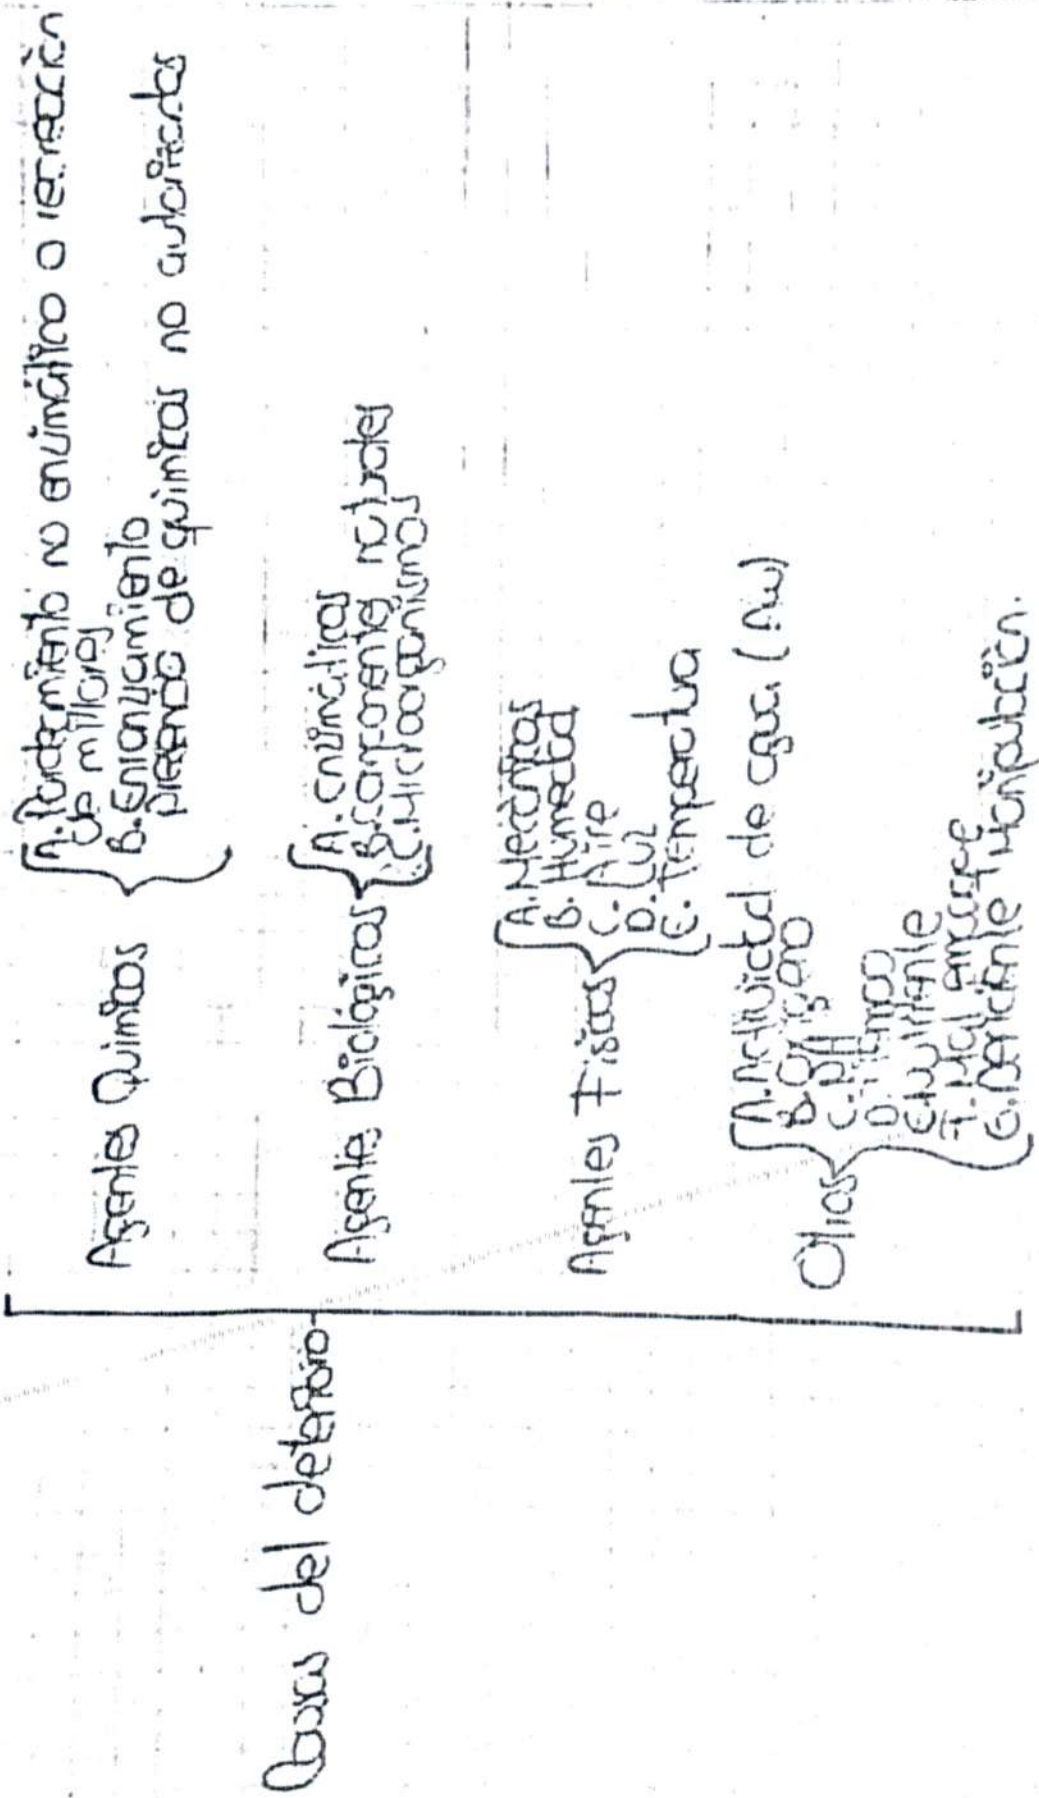 Causas del deterioro
Agentes Quimicos
A. Pardamiento no enzimático o reacción
de millares
B. Enranzamiento
presencia de quimicos no autorizados
Agentes Biológicos
A. enzimáticos
B. componentes naturales
C. Microorganismos
Agentes Fisicos
A. Mecánicas
B. Humedad
C. Aire
D. Luz
E. Temperatura
Otros
A. Actividad de agua (Aw)
B. Oxigeno
C. PH
D. Tiempo
E. Nutriente
F. Mal empaque
G. Deficiente Manipulación.